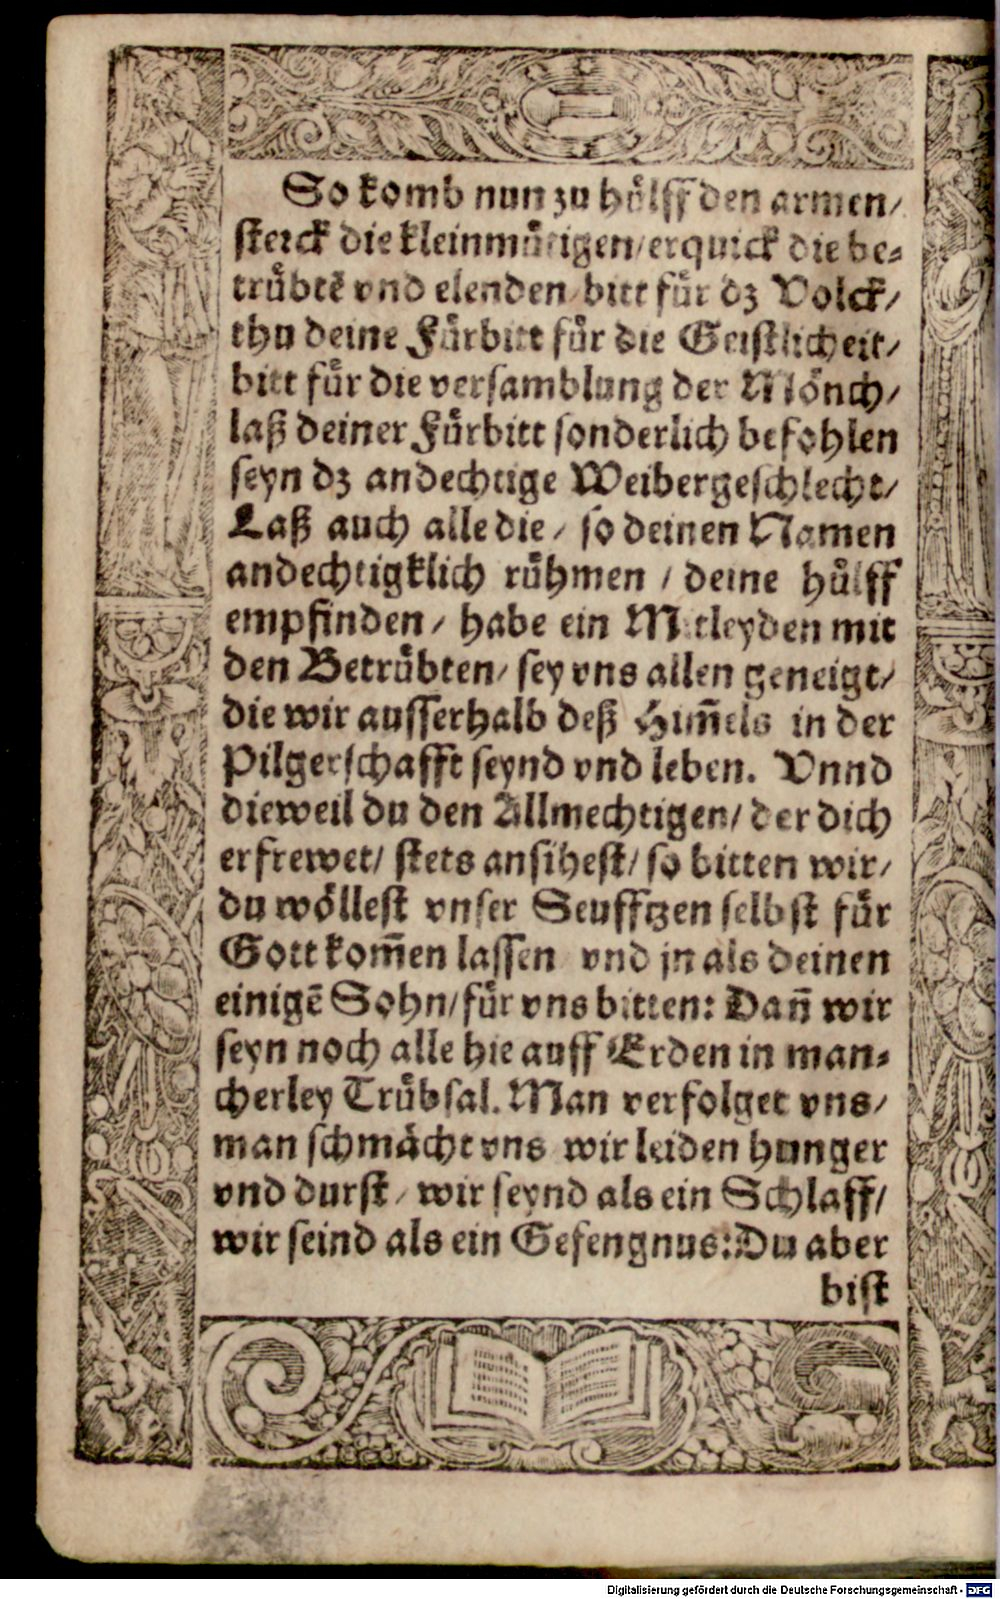 So komb nun zu hülff den armen/
sterck die kleinmütigen/erquick die be⸗
trübtē vnd elenden/bitt für dz Volck/
thu deine Fürbitt für die Geistlicheit/
bitt für die versamblung der Mönch/
laß deiner Fürbitt sonderlich befohlen
seyn dz andechtige Weibergeschlecht/
Laß auch alle die/ so deinen Namen
andechtigklich rühmen / deine hülff
empfinden/ habe ein Mitleyden mit
den Betrübten/ sey vns allen geneigt/
die wir ausserhalb deß Him̃els in der
Pilgerschafft seynd vnd leben. Vnnd
dieweil du den Allmechtigen/ der dich
erfrewet/ stets ansihest/ so bitten wir/
du wöllest vnser Seufftzen selbst für
Gott kom̃en lassen vnd jn als deinen
einigē Sohn/für vns bitten: Dañ wir
seyn noch alle hie auff Erden in man⸗
cherley Trübsal. Man verfolget vns/
man schmächt vns wir leiden hunger
vnd durst/ wir seynd als ein Schlaff/
wir seind als ein Gefengnus: Du aber
bist
Digitalisierung gefördert durch die Deutsche Forschungsgemeinschaft - DFG